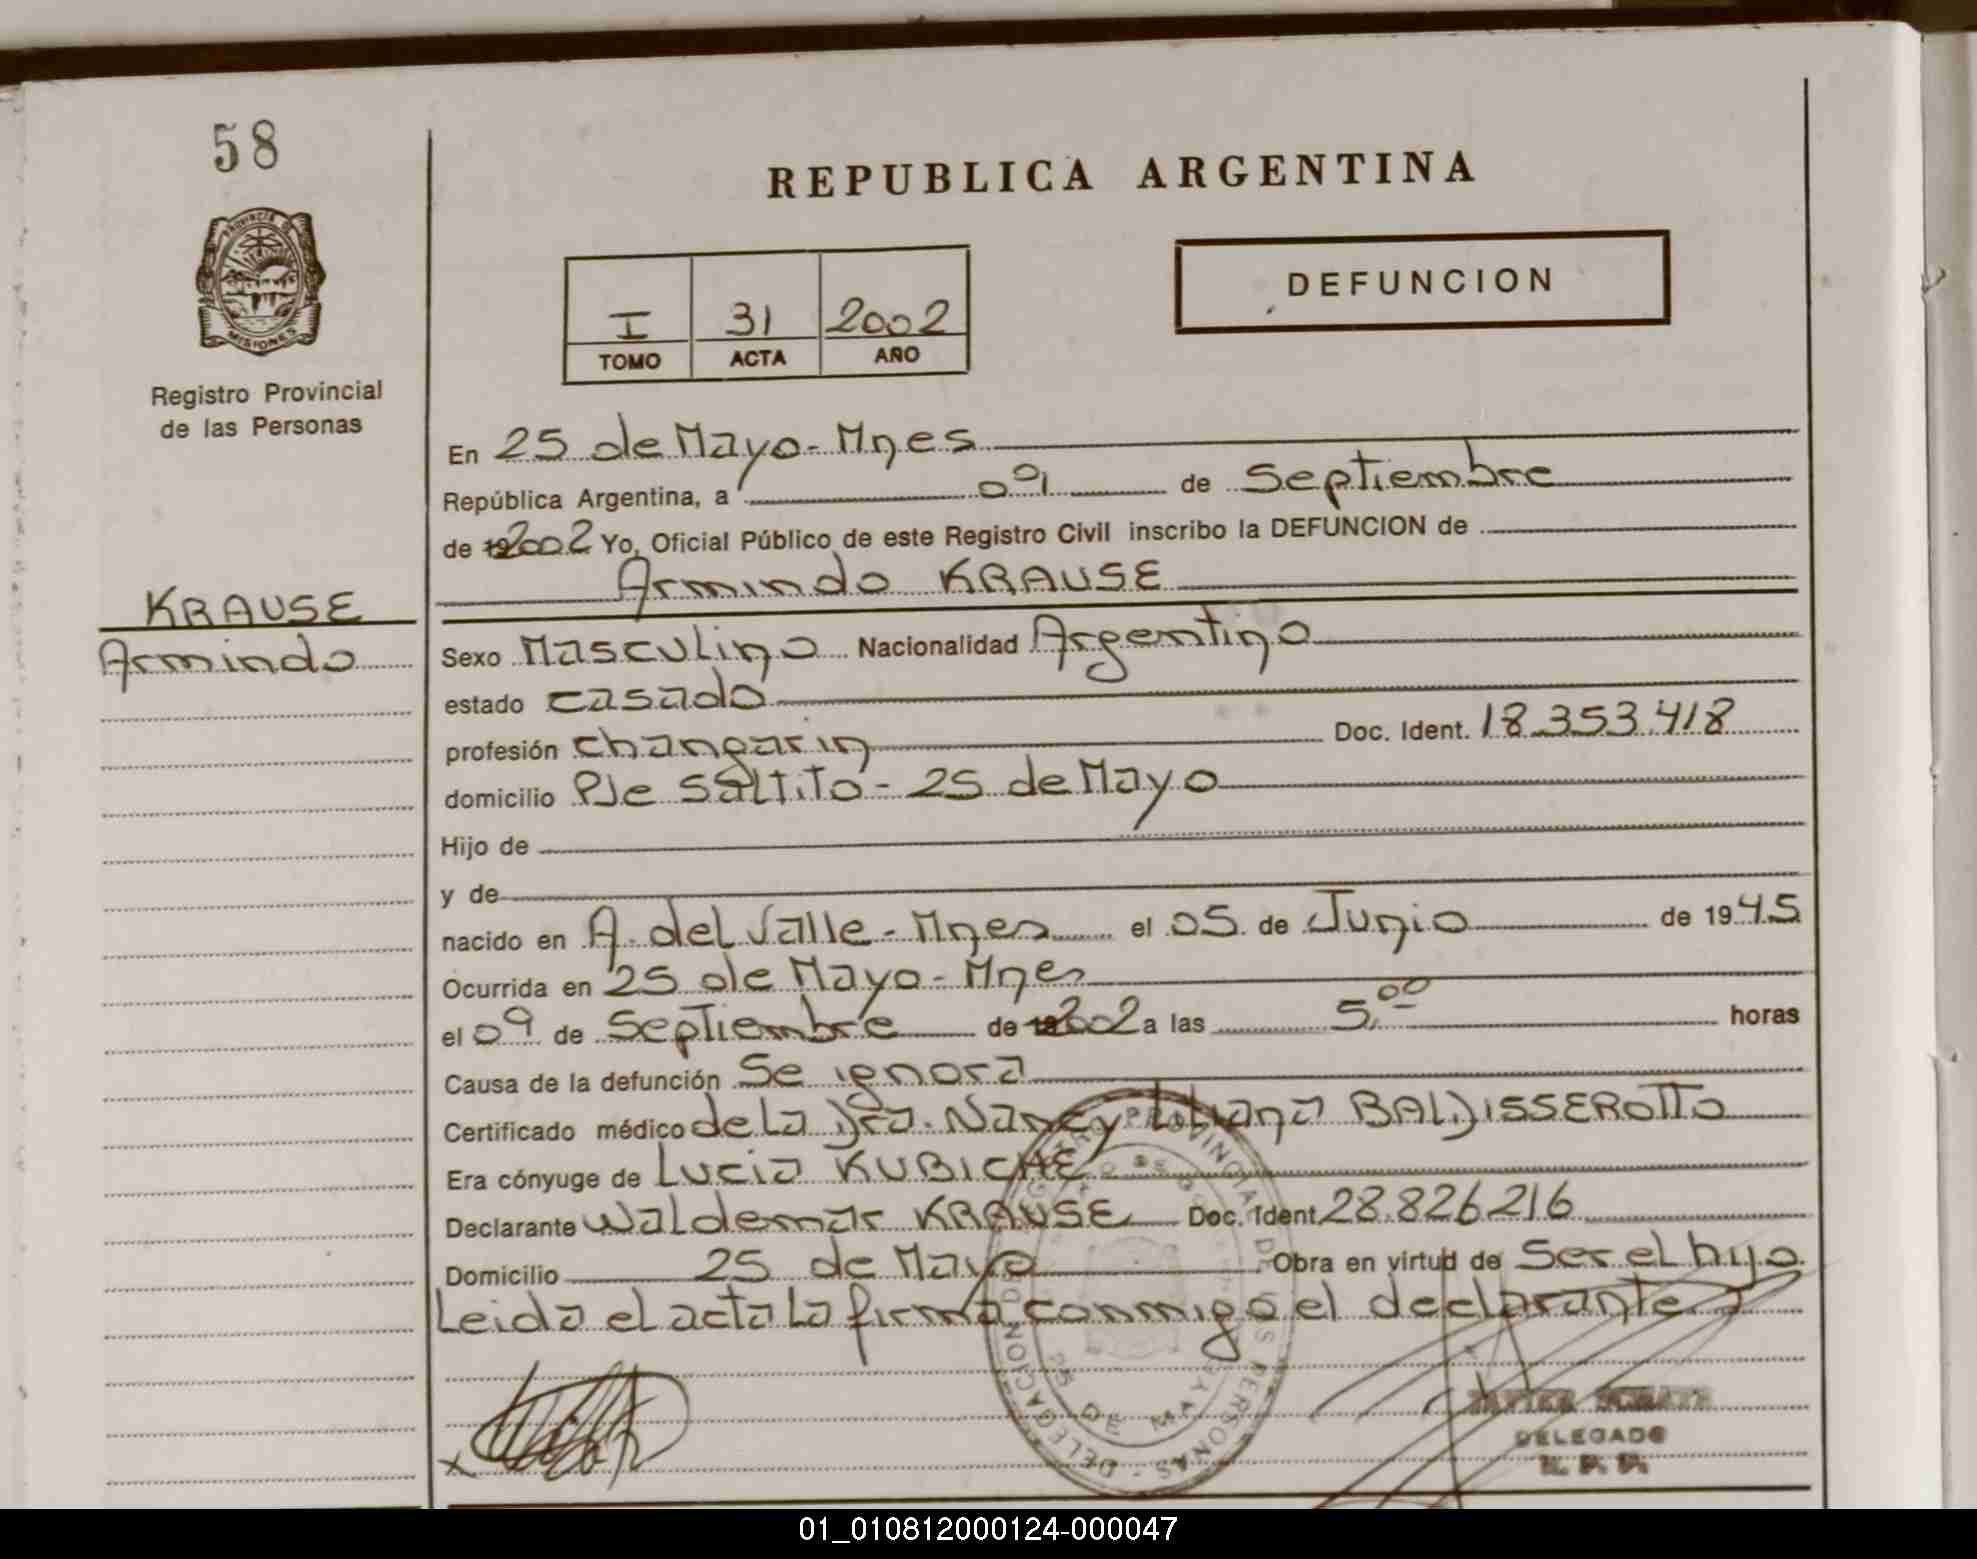 58
REPUBLICA ARGENTINA
PROVINCIA DE
MISIONES
Registro Provincial
de las Personas
DEFUNCION
I 31 2002
TOMO ACTA AÑO
En 25 de Mayo - Mnes
República Argentina, a 09 de Septiembre
de 2002 Yo, Oficial Público de este Registro Civil inscribo la DEFUNCION de
Armindo KRAUSE
KRAUSE
Armindo
Sexo Masculino Nacionalidad Argentino
estado casado
profesión changarin Doc. Ident. 18.353.418
domicilio Pje Saltito - 25 de Mayo
Hijo de
y de
nacido en A. del Valle - Mnes el 05 de Junio de 1945
Ocurrida en 25 de Mayo - Mnes
el 09 de Septiembre de 2002 a las 5,00 horas
Causa de la defunción Se ignora
Certificado médico de la Dra. Nancy Liliana BALDISSEROTTO
Era cónyuge de Lucia KUBICHE
Declarante Waldemar KRAUSE Doc. Ident. 28.826.216
Domicilio 25 de Mayo Obra en virtud de Ser el hijo.
Leida el acta la firma conmigo el declarante
REGISTRO PROVINCIAL DE LAS PERSONAS - DELEGACION DE
25 DE MAYO
DELEGADO
R. P. P.
01_010812000124-000047